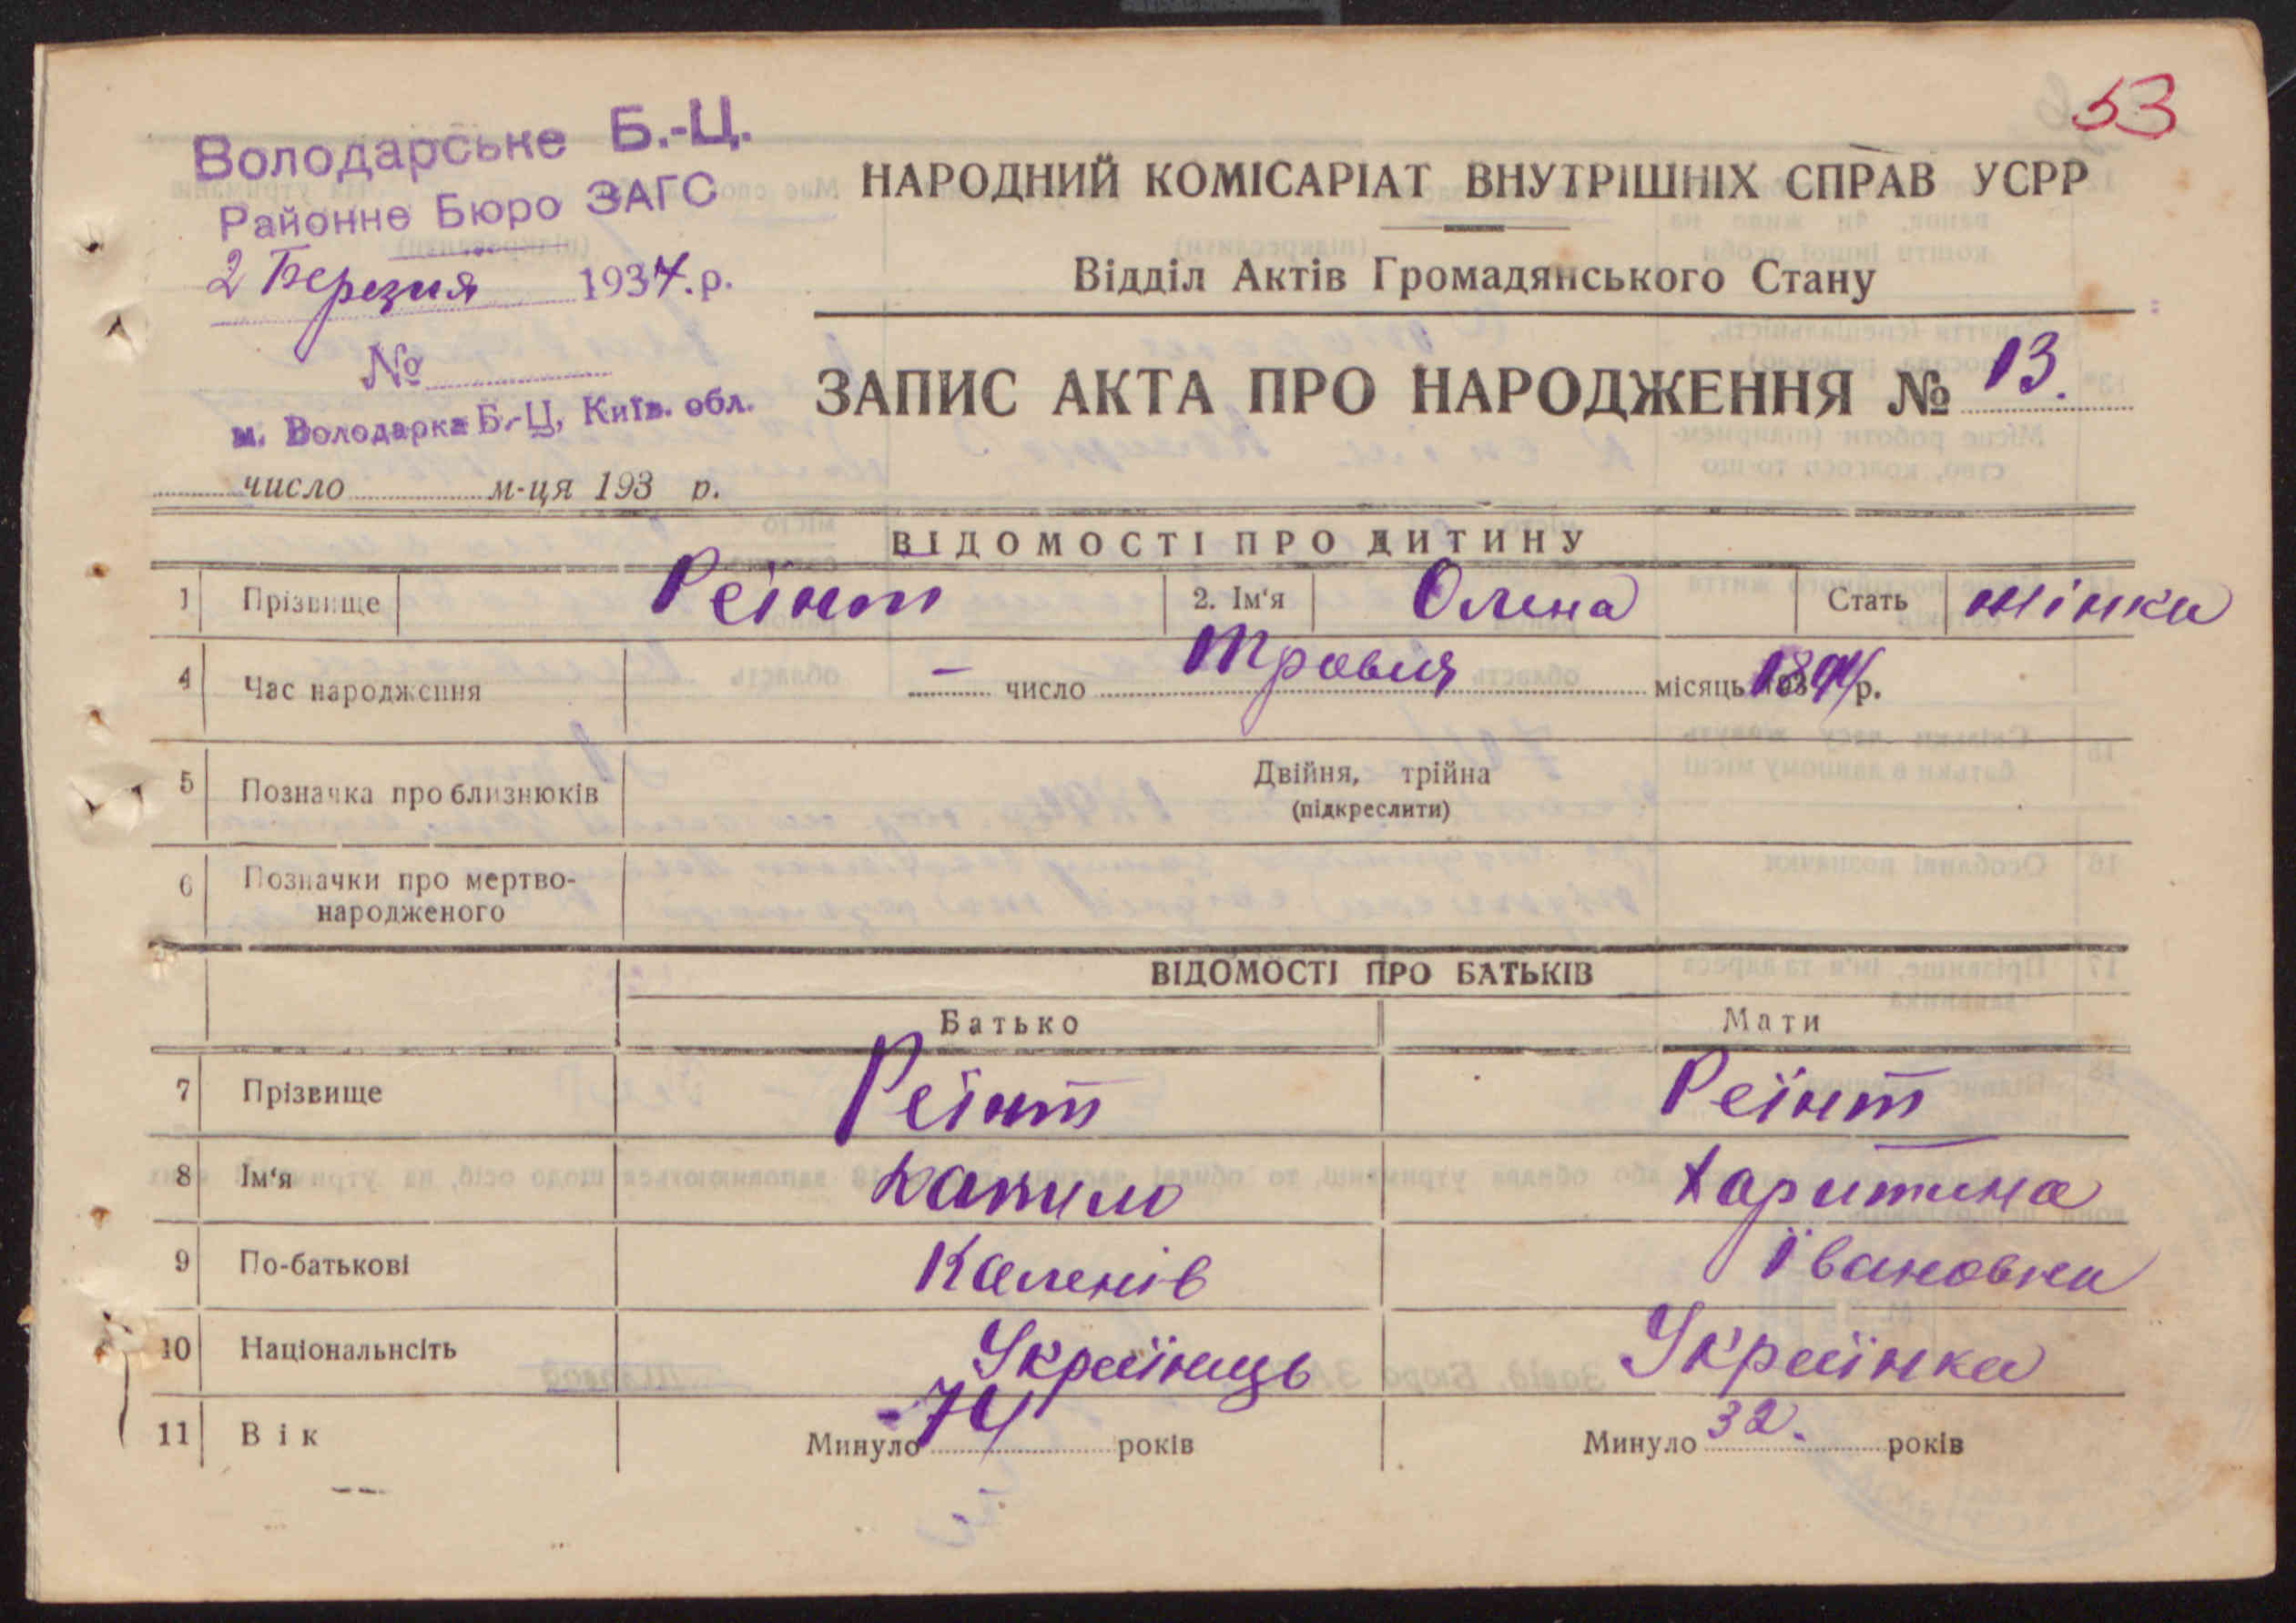 53
Володарське Б.-Ц.
Районне Бюро ЗАГС
2 Березня 1934.р.
№
м. Володарка Б.-Ц, Київ. обл.
число м-ця 193 р.
НАРОДНИЙ КОМІСАРІАТ ВНУТРІШНІХ СПРАВ УСРР
Відділ Актів Громадянського Стану
ЗАПИС АКТА ПРО НАРОДЖЕННЯ № 13.
ВІДОМОСТІ ПРО ДИТИНУ
1 Прізвище Реїнт 2. Ім'я Олена Стать жінка
4 Час народження – число Травня місяць 1894 р.
5 Позначка про близнюків Двійня, трійна
(підкреслити)
6 Позначки про мертво-
народженого
ВІДОМОСТІ ПРО БАТЬКІВ
Батько Мати
7 Прізвище Реїнт Реїнт
8 Ім'я Данило Харитина
9 По-батькові Каленів Івановна
10 Національнсіть Українець Українка
11 Вік Минуло 74 років Минуло 32. років